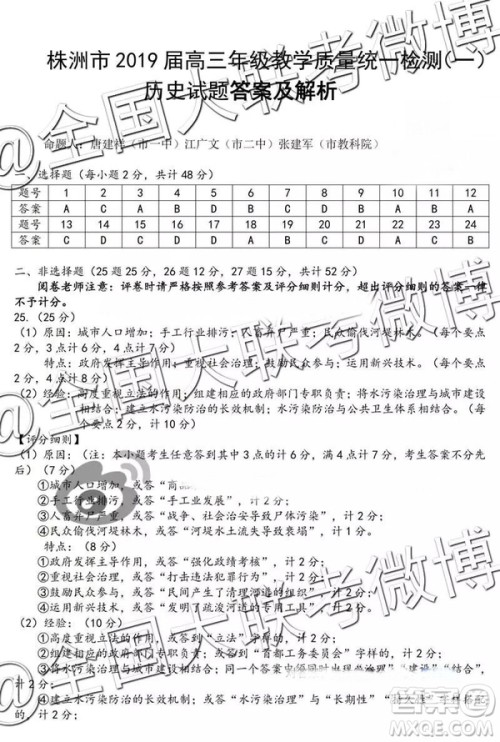 株洲市 2019 届高三年级教学质量统一检测(一)
历史试题答案及解析
命题人：唐建祥（市一中）江广文（市二中）张建军（市教科院）
一、选择题（每小题 2 分，共计 48 分）
题号 1 2 3 4 5 6 7 8 9 10 11 12
答案 A C A B D B C
题号 13 14 15 16 17 18 19 20 21 22 23 24
答案 C D C D A D B
二、非选择题（25 题 25 分，26 题 12 分，27 题 15 分，共计 52 分）
阅卷老师注意：评卷时请严格按照参考答案及评分细则计分，超出评分细则的答案一律
不予计分。
25.（25 分）
（1）原因：城市人口增加；手工行业排污；人畜弃尸严重；民众偷伐河堤林木。（每个要点
2 分，3 点计 6 分，4 点计 7 分）
特点：政府发挥主导作用；重视社会治理；鼓励民众参与；运用新兴技术。（每个要
点 2 分，计 8 分）
（2）经验：高度重视立法的作用；组建有权威的政府部门专职负责；将水污染治理与城市建设
相结合；建立水污染防治的长效机制；水污染防治与公共卫生体系相结合。（每
个要点 2 分，计 10 分）
【评分细则】
（1）原因：（注：本小题考生任意答到其中 3 点计 6 分，满 4 点计 7 分，考生答案不分先
后）（7 分）
①城市人口增加，或答“商
②手工行业排污，或答“手工业发展”，计 2 分；
③人畜弃尸严重，或答“战争、社会动荡导致尸体污染”，计 2 分；
④民众偷伐河堤林木，或答“河堤水土流失导致衰塌”，计 2 分；
特点：（8 分）
①政府发挥主导作用，或答“强化政绩考核”，计 2 分；
②重视社会治理，或答“打击违法犯罪行为”，计 2 分；
③鼓励民众参与，或答“民间自发性地展开了清理河道的组织”，计 2 分；
④运用新兴技术，或答 计 2 分；
（2）经验：（10 分）
①高度重视立法的作用，或答“立法”的字样，计 2 分；
②组建权威的政府部门专职负责，或答“首都工务委员会”字样的，计 2 分；
③将水污染治理与城市建设相结合，或答案中必须同时出现治理“建设”“结合”，
计 2 分；
④建立水污染防治的长效机制；或答“水污染治理”与“长期性”
的，计 2 分；